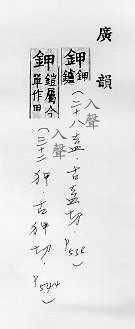 廣韻
鉀 鉀鑪
(二十八)盍.古盍切.P536
入聲
鉀 鎧屬今單作甲
(三十二)狎.古狎切.P544
入聲